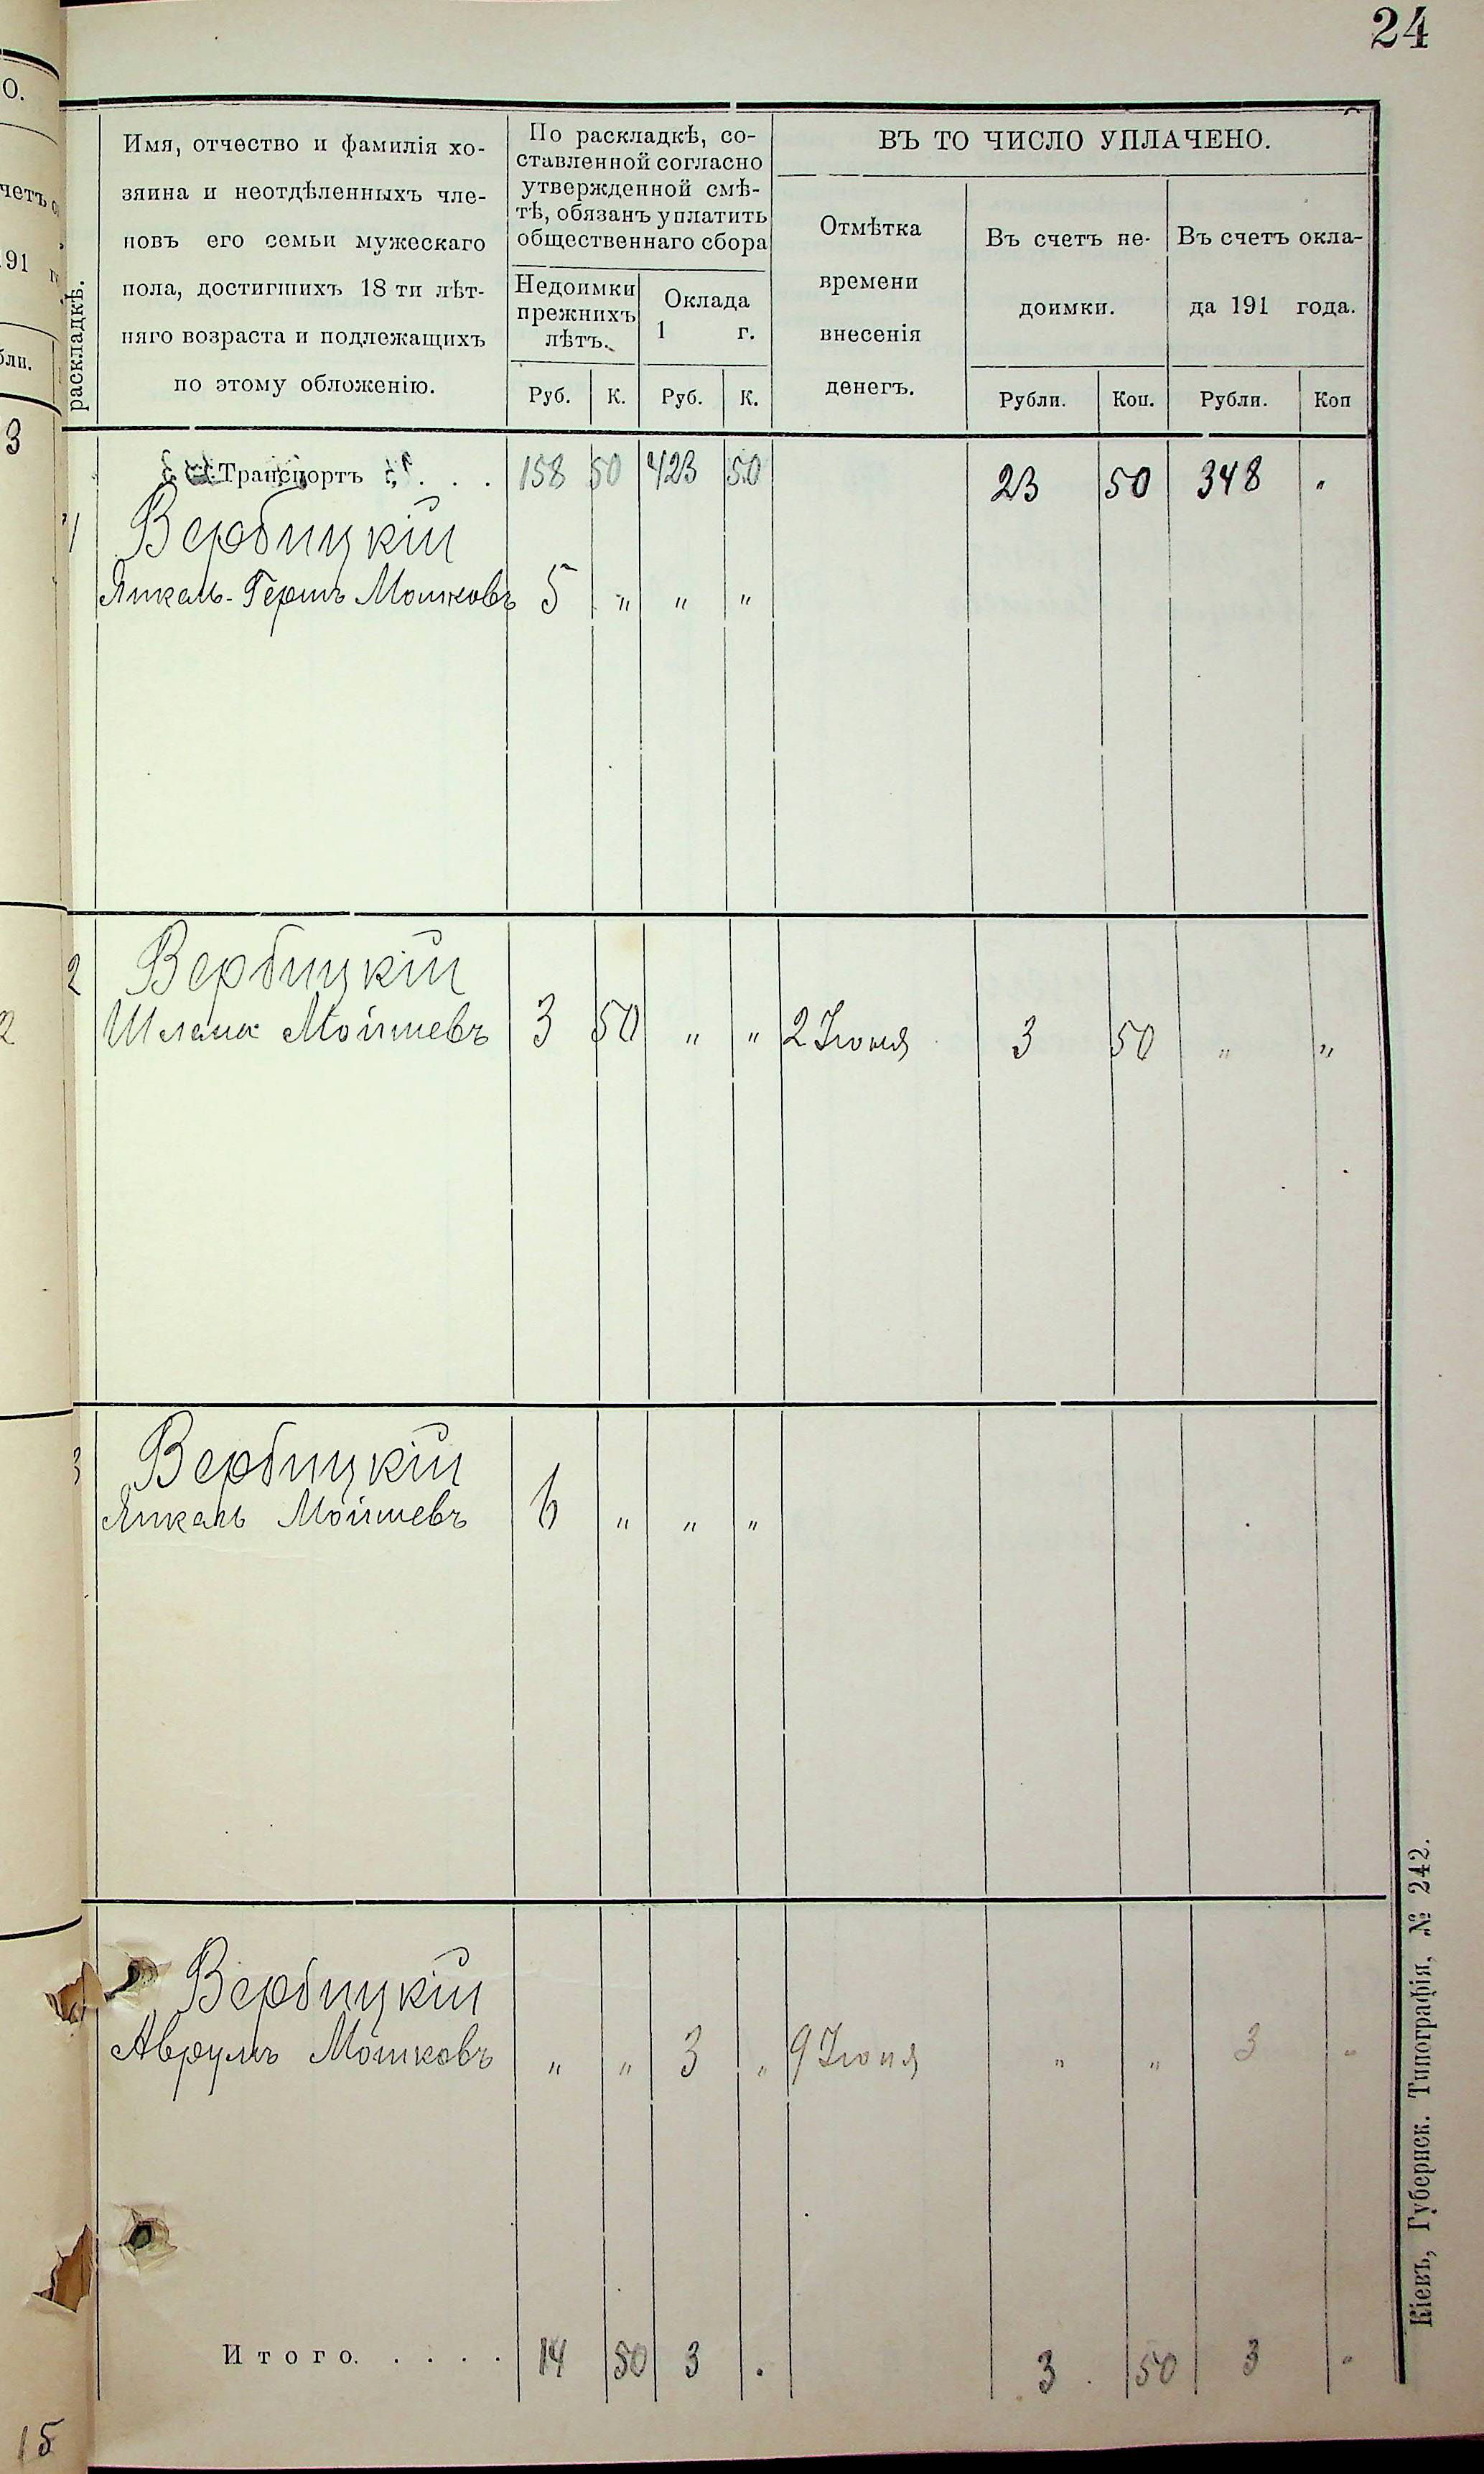 24
О.
четъ
191
бли.
3
2
15
раскладкѣ.
Имя, отчество и фамилія хо-
зяина и неотдѣленныхъ чле-
новъ его семьи мужескаго
пола, достигшихъ 18 ти лѣт-
няго возраста и подлежащихъ
по этому обложенію.
По раскладкѣ, со-
ставленной согласно
утвержденной смѣ-
тѣ, обязанъ уплатить
общественнаго сбора
Недоимки
прежнихъ
лѣтъ.
Оклада
1 г.
Руб. К. Руб. К.
ВЪ ТО ЧИСЛО УПЛАЧЕНО.
Отмѣтка
времени
внесенія
денегъ.
Въ счетъ не-
доимки.
Въ счетъ окла-
да 191 года.
Рубли. Коп. Рубли. Коп
Транспортъ . . . 158 50 423 50 23 50 348 "
1 Вербицкій
Янкель-Гершъ Мошковъ 5 " " "
2 Вербицкій
Шлема Мойшевъ 3 50 " " 2 Іюня 3 50 " "
3 Вербицкій
Янкель Мойшевъ 6 " " "
Вербицкій
Аврумъ Мошковъ " " 3 " 9 Іюня " " 3 "
Итого. . . . . 14 50 3 . 3 50 3 "
Кіевъ, Губернск. Типографія, № 242.